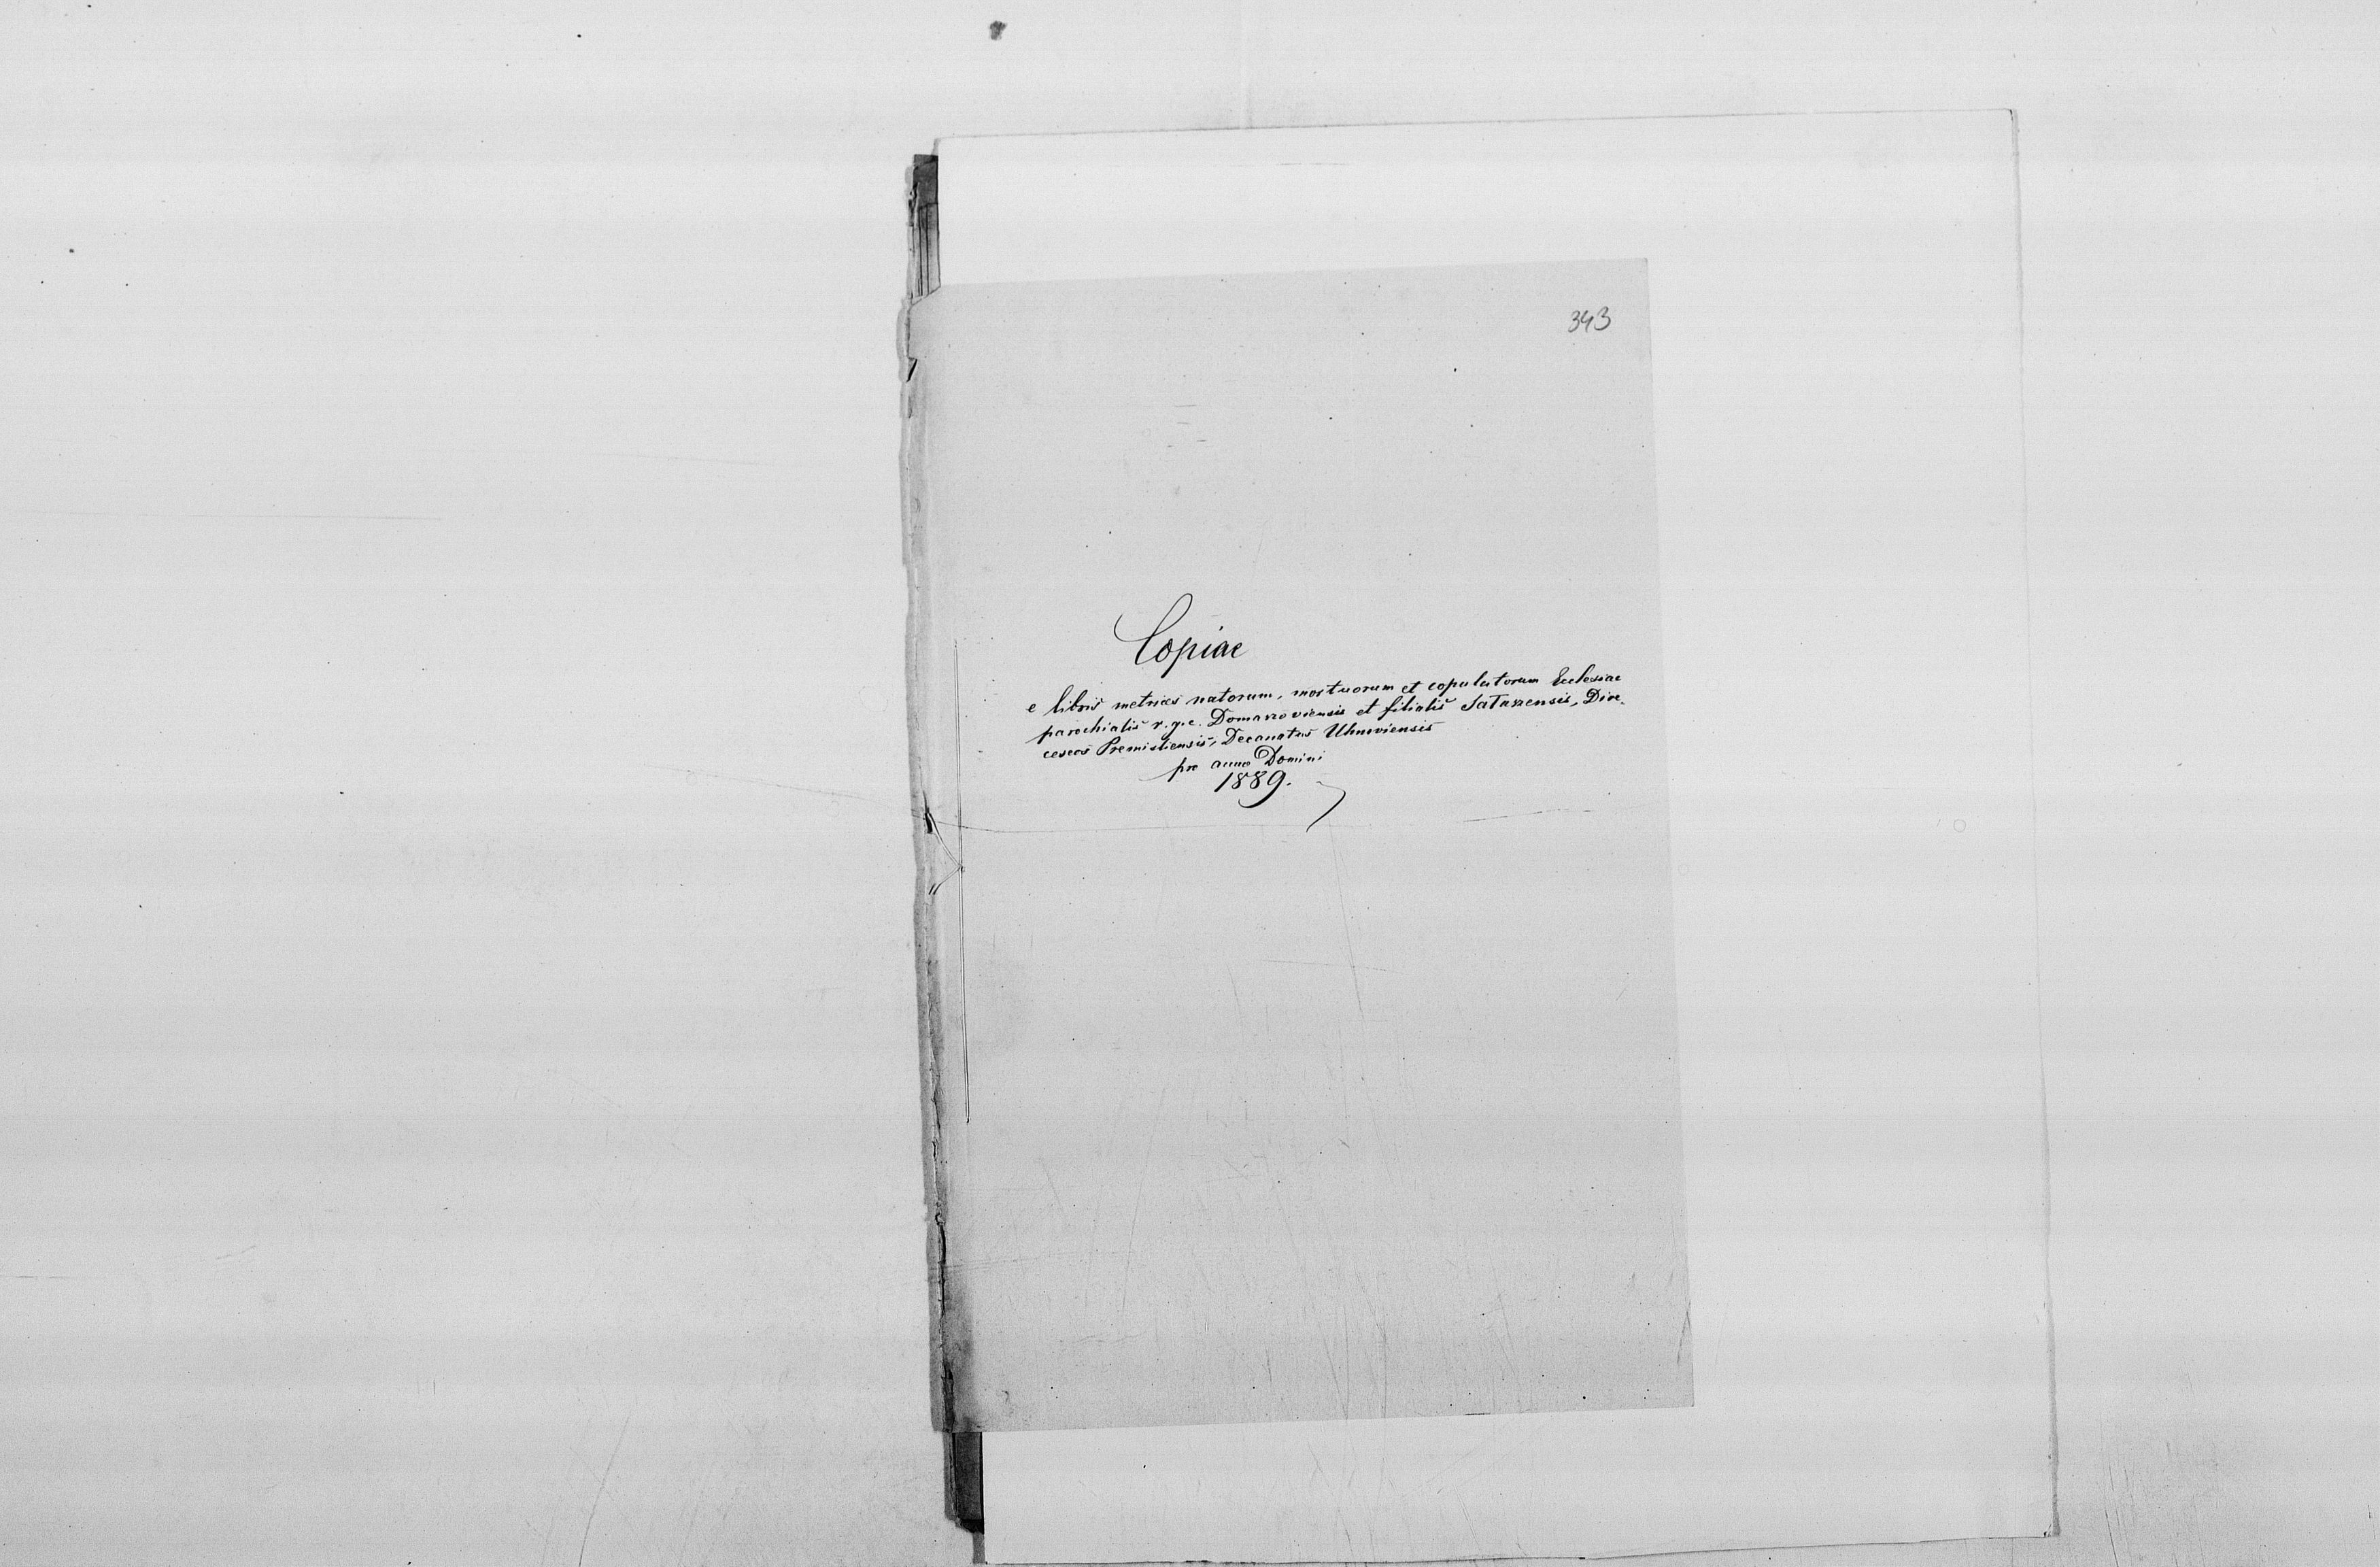 343
Copiae
e libris metrices natorum, mortuorum et copulatorum Ecclesiae
parochialis r. g. c. Domaszoviensis et filialis Satarzensis, Dioe-
ceseos Premisliensis, Decanatus Uhnoviensis
pro anno Domini
1889.